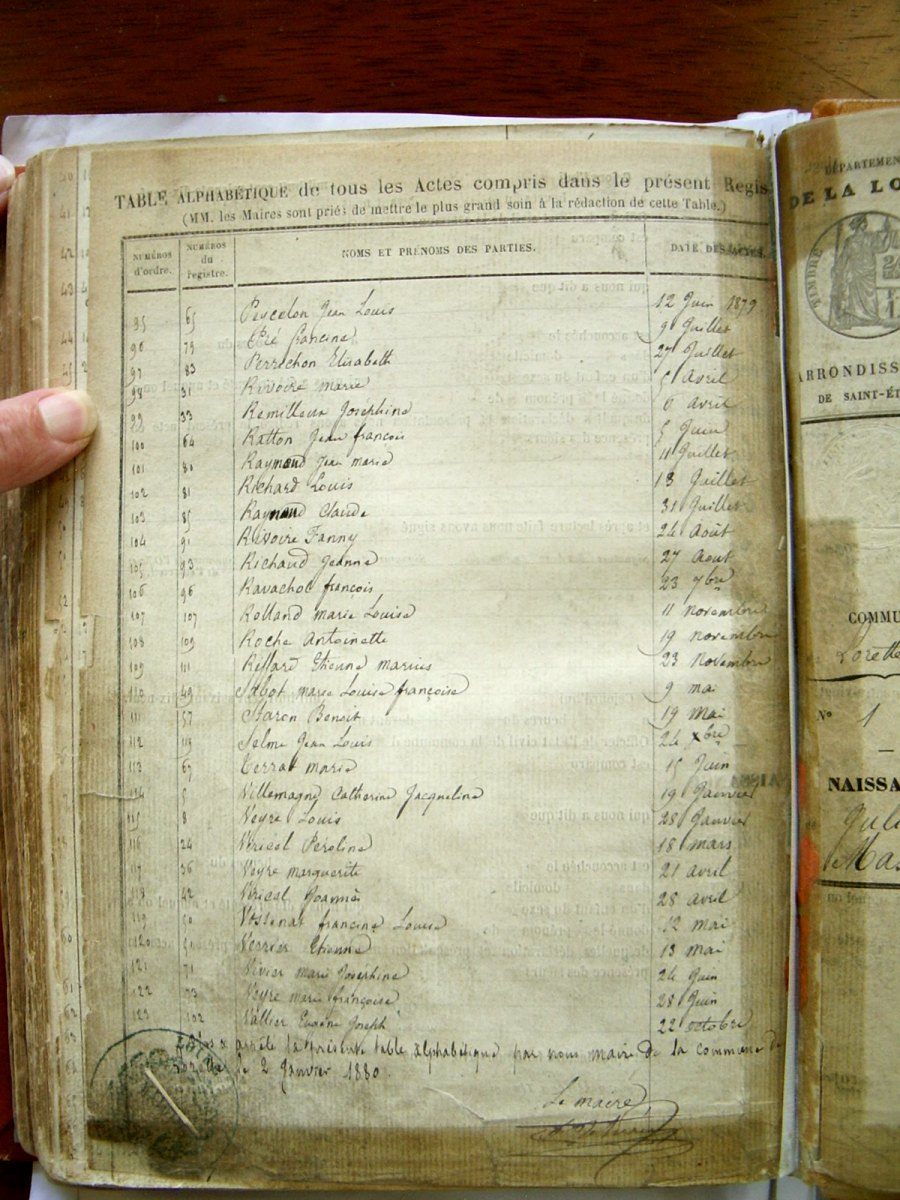 TABLE ALPHABÉTIQUE de tous les Actes compris dans le présent Regis
(MM. les Maires sont priés de mettre le plus grand soin à la rédaction de cette Table.)
NUMÉROS d'ordre. NUMÉROS du registre. NOMS ET PRÉNOMS DES PARTIES. DATE DES ACTES.
95 65 Peycelon Jean Louis 12 Juin 1879
96 79 Pré francine 9 Juillet
97 83 Perrichon Elisabeth 27 Juillet
98 31 Rivoire marie 5 Avril
99 33 Remilleux Joséphine 6 avril
100 64 Ratton Jean françois 5 Juin
101 80 Raymond Jean marie 11 Juillet
102 81 Richard Louis 13 Juillet
103 85 Raymond Claude 31 Juillet
104 91 Rivoire Fanny 24 Août
105 93 Richaud Jeanne 27 Aout
106 96 Ravachol françois 23 7bre
107 107 Rolland marie Louise 11 novembre
108 109 Roche Antoinette 19 novembre
109 111 Rillard Etienne marius 23 Novembre
110 49 Sabot marie Louise françoise 9 mai
111 57 Staron Benoit 19 Mai
112 119 Selme Jean Louis 24 Xbre
113 67 Terrat marie 15 Juin
114 5 Villemagne Catherine Jacqueline 19 Janvier
115 8 Veyre Louis 28 Janvier
116 24 Vricel Péroline 18 mars
117 36 Veyre marguerite 21 avril
118 42 Vricel Joannès 28 avril
119 50 francine Louise 12 mai
120 Verrier Etienne 13 mai
121 71 Vivier marie Joséphine 24 Juin
122 73 Veyre marie françoise 28 Juin
123 102 Vallier Eugène Joseph 22 octobre
arrêté la présente table alphabétique par nous maire de la commune de
Lorette le 2 Janvier 1880.
Le maire
DÉPARTEMEN
DE LA LO
TIMBRE
ARRONDISS
DE SAINT-ÉT
COMMU
Lorette
N° 1
NAISSA